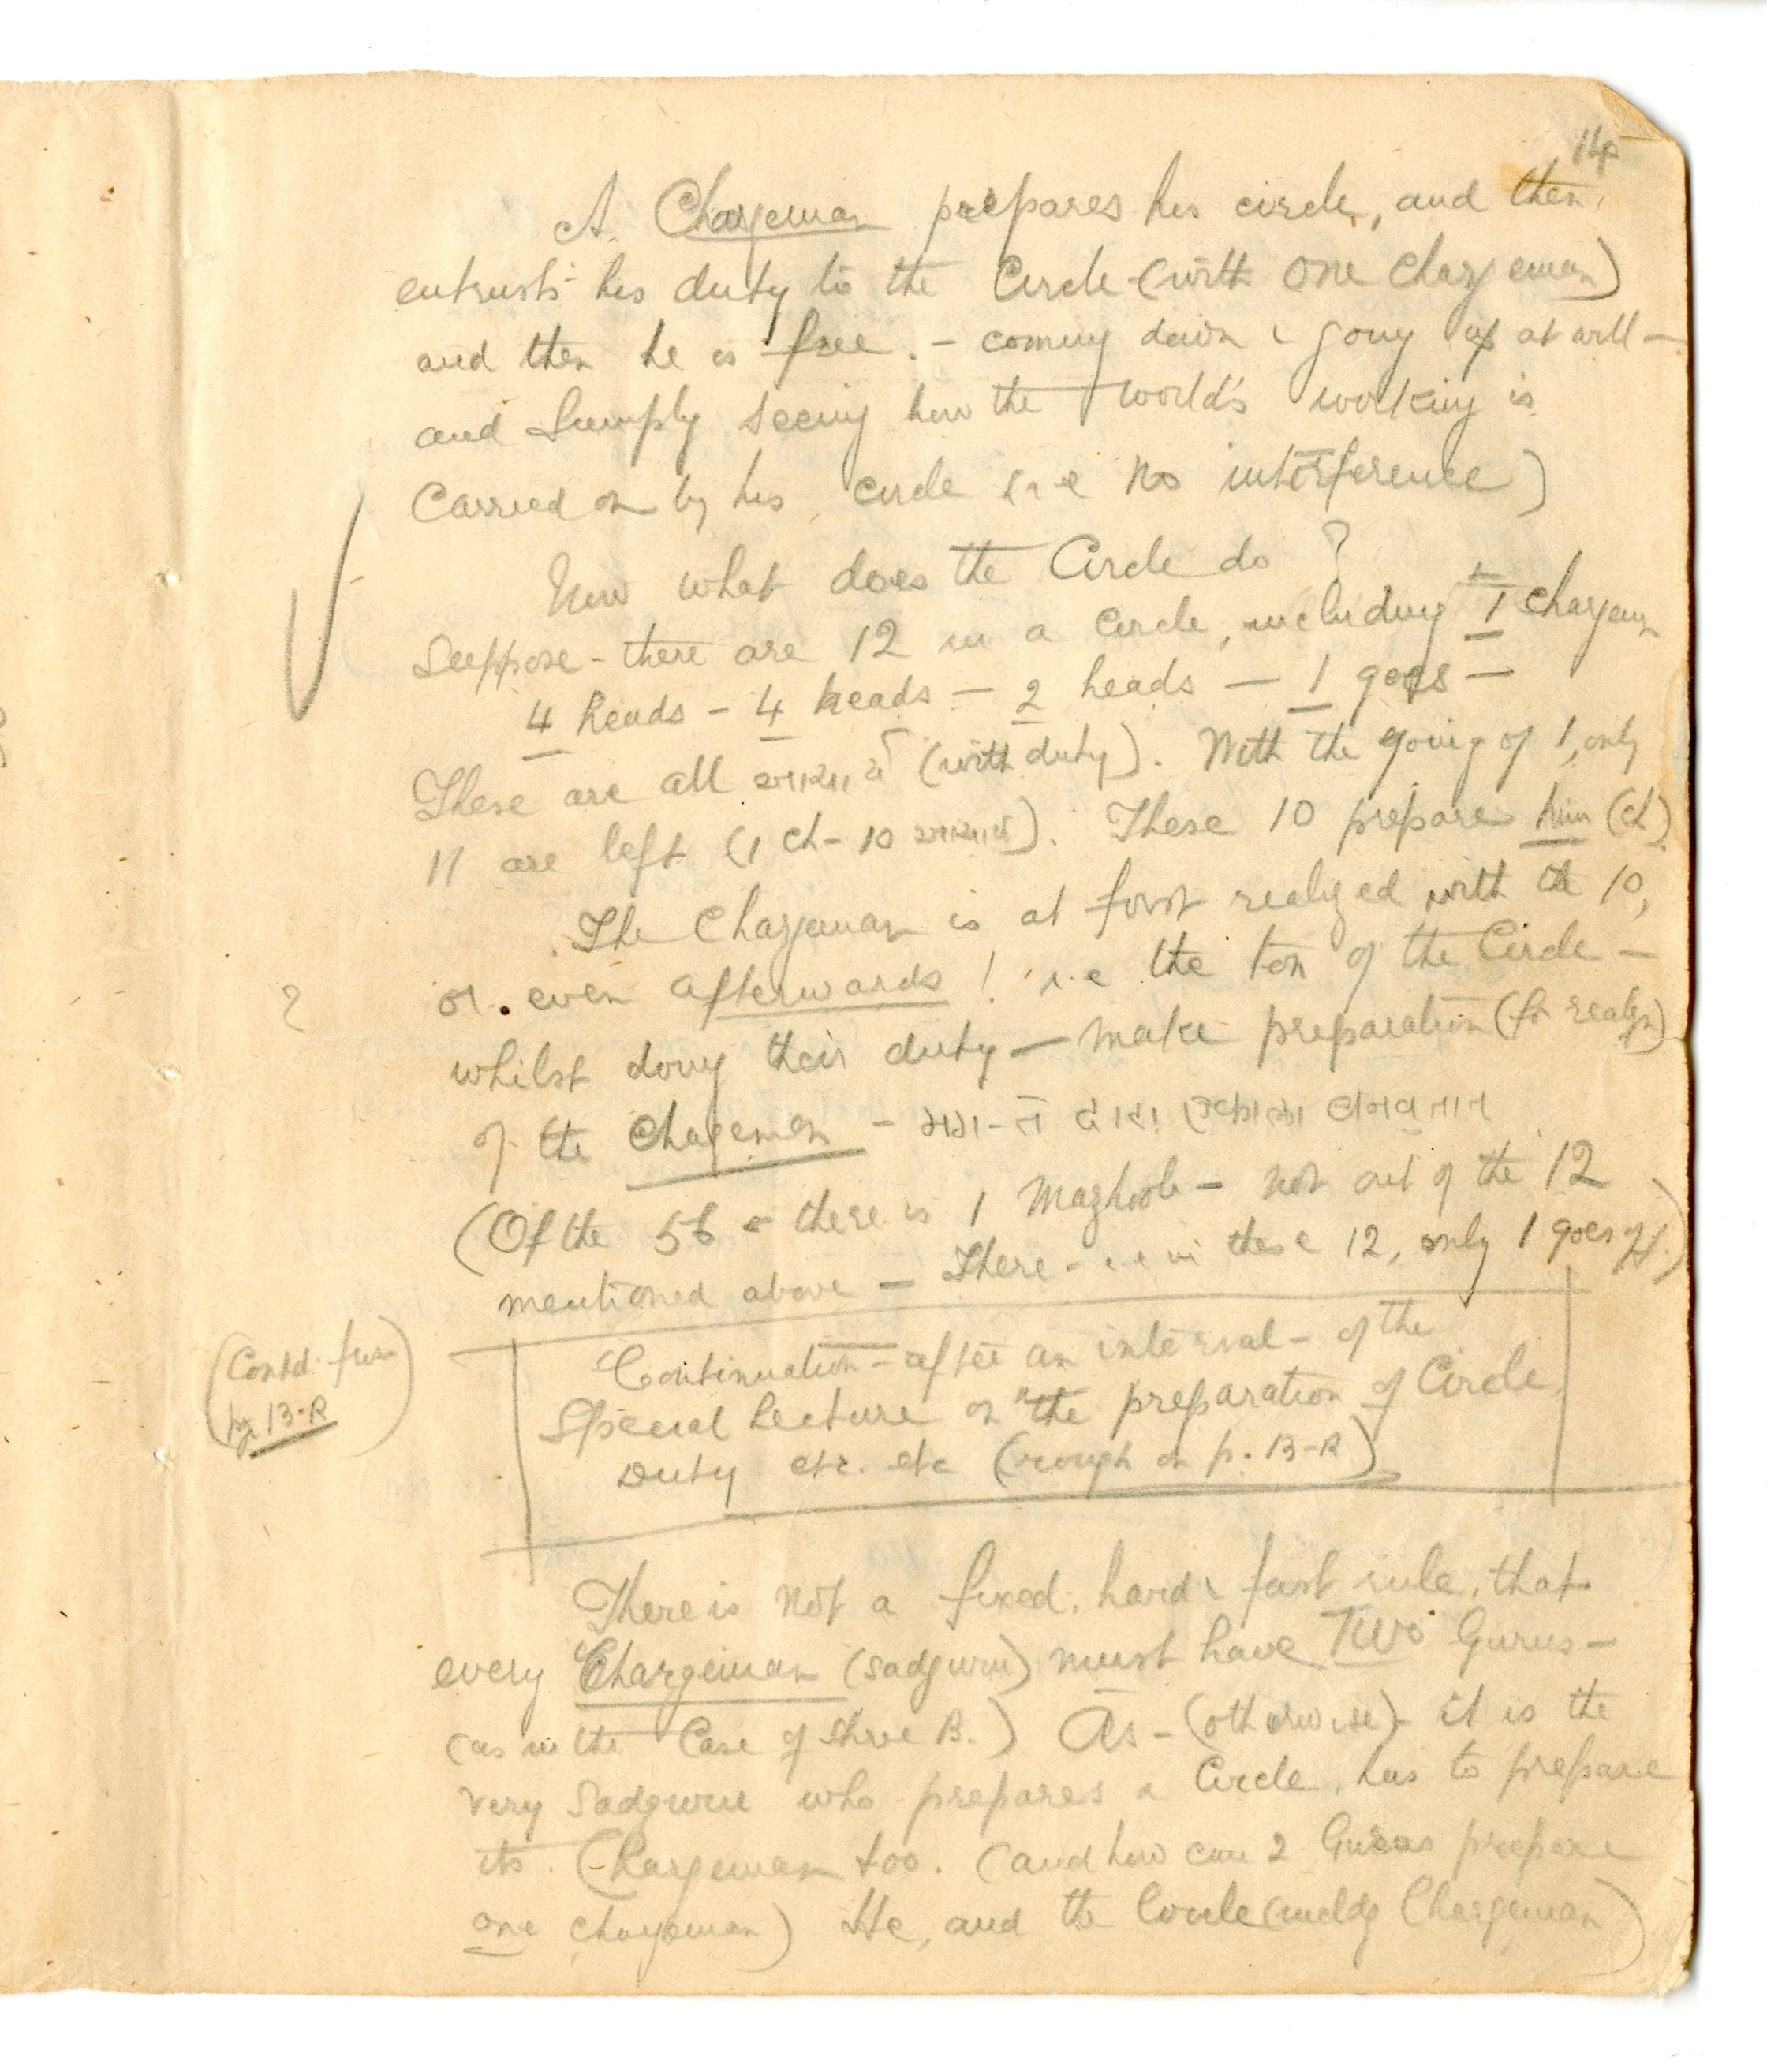 14
A Chargeman prepares his circle, and then
entrusts his duty to the Circle (with one chargeman)
and then he is free. - coming down & going up at will -
and simply seeing how the world's working is
carried on by his circle (i.e no interference)
Now what does the Circle do ?
Suppose - there are 12 in a circle, including 1 chargeman
4 heads - 4 heads - 2 heads - 1 goes -
These are all (with duty). With the going of 1, only
11 are left (1 ch - 10 ). These 10 prepare him (ch).
The Chargeman is at first realized with the 10,
?
or even afterwards ! i.e the ten of the Circle -
whilst doing their duty - make preparation (for realzn)
of the chargeman -
(Of the 56 - there is 1 Mazhoob - not out of the 12
mentioned above - There - i.e in these 12, only 1 goes off.)
(Contd. from
pg 13-R)
Continuation - after an interval - of the
Special Lecture on "the preparation of Circle,
Duty etc. etc (rough on p. 13-R)
There is not a fixed, hard & fast rule, that
every Chargeman (Sadguru) must have TWO Gurus -
(as in the Case of Shree B.) As - (otherwise) - it is the
very Sadguru who prepares a Circle, has to prepare
its Chargeman too. (and how can 2 Gurus prepare
one chargeman) He, and the Circle (incldg Chargeman)